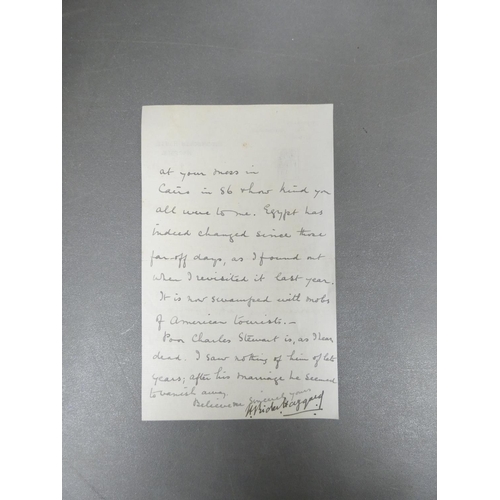 at your mess in
Cairo in 86 & how kind you
all were to me. Egypt has
indeed changed since those
far-off days, as I found out
when I revisited it last year.
It is now swamped with mobs
of American tourists.—
Poor Charles Stewart is, as I hear
dead. I saw nothing of him of late
years; after his marriage he seemed
to vanish away
Believe me sincerely yours
H Rider Haggard